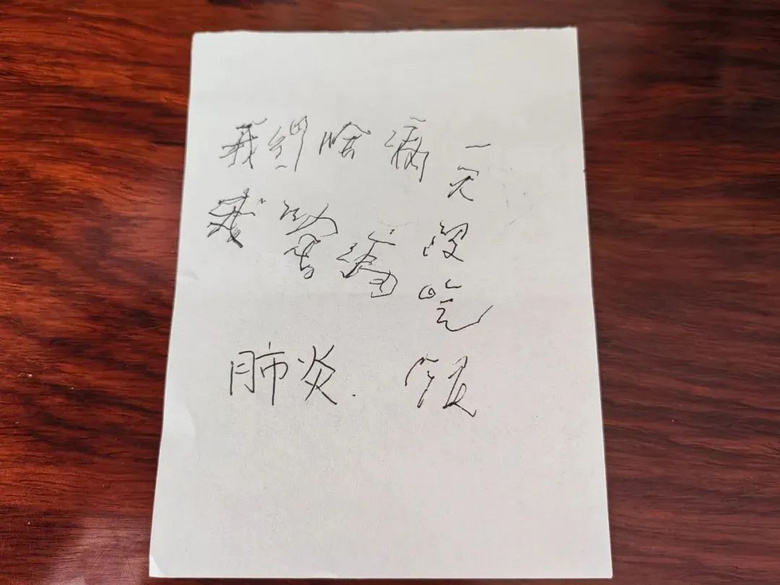 我啥病
我
肺炎.
一天没吃饭